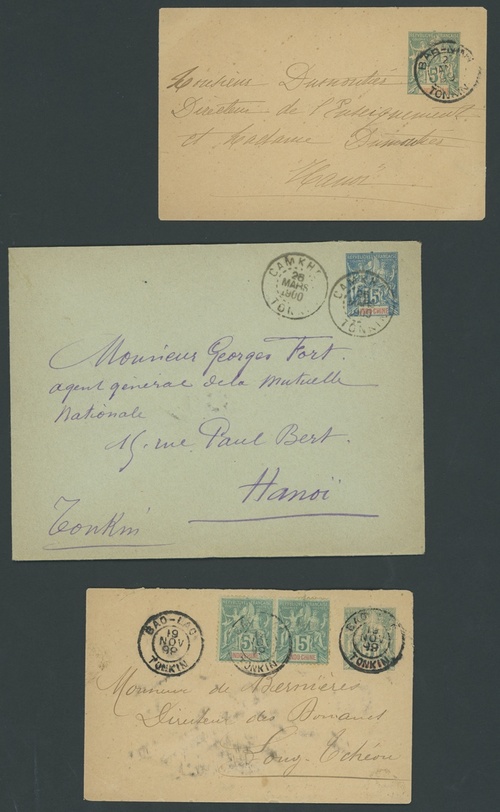 BAC-NINH
TONKIN
5
Monsieur Dumoutier
Directeur de l'Enseignement
et Madame Dumoutier
Hanoï
CAMKHÉ
26
MARS
1900
TONKIN
CAMKHÉ
1900
TONKIN
15
INDO-CHINE
Monsieur Georges Fort.
agent général de la Mutuelle
Nationale
15 rue Paul Bert.
Hanoï
Tonkin
BAO-LAC
19
NOV
98
TONKIN
5
INDO-CHINE
5
INDO-CHINE
TONKIN
BAO-LAC
19
NOV
98
TONKIN
Monsieur de
Directeur des Douanes
Long-Tchéou